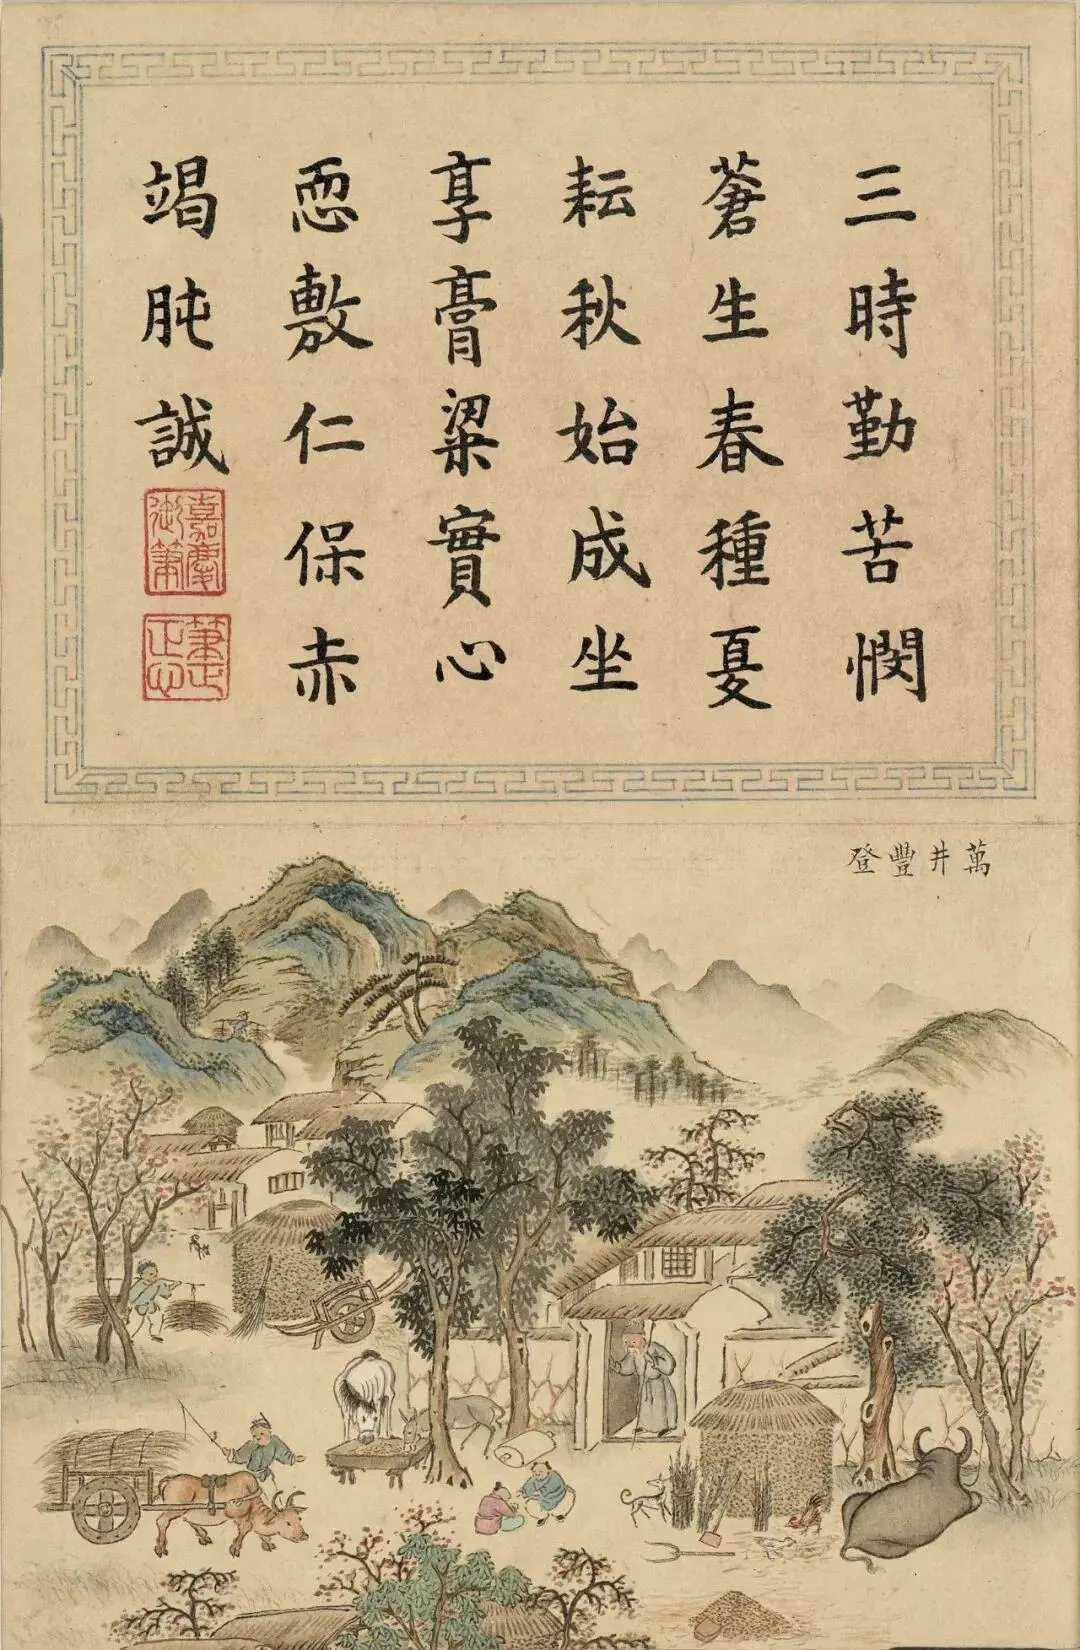 三時勤苦憫
蒼生春種夏
耘秋始成坐
享膏粱實心
恧敷仁保赤
竭肫誠
嘉慶御筆
萬井豐登